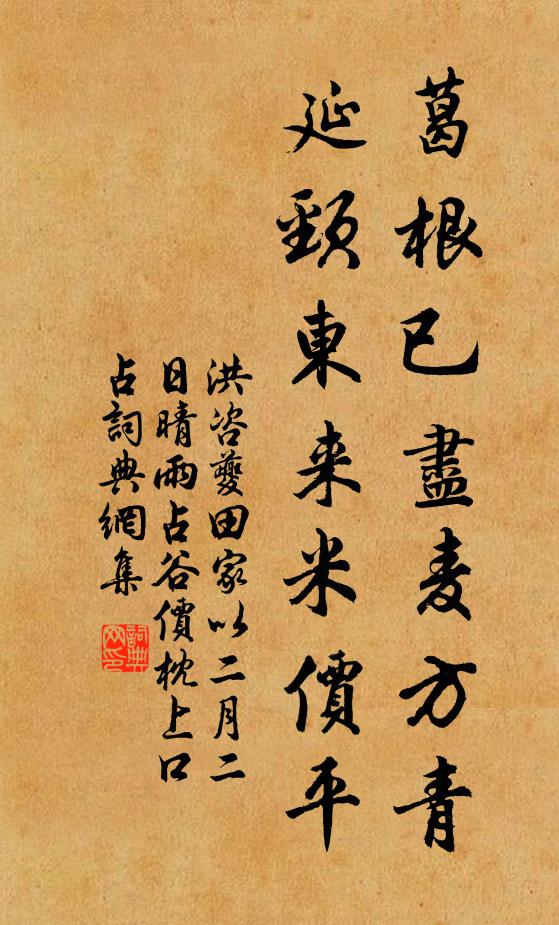 葛根已盡麦方青
延頸東来米價平
洪咨夔田家以二月二
日晴雨占谷價枕上口
占詞典網集
詞典
网印